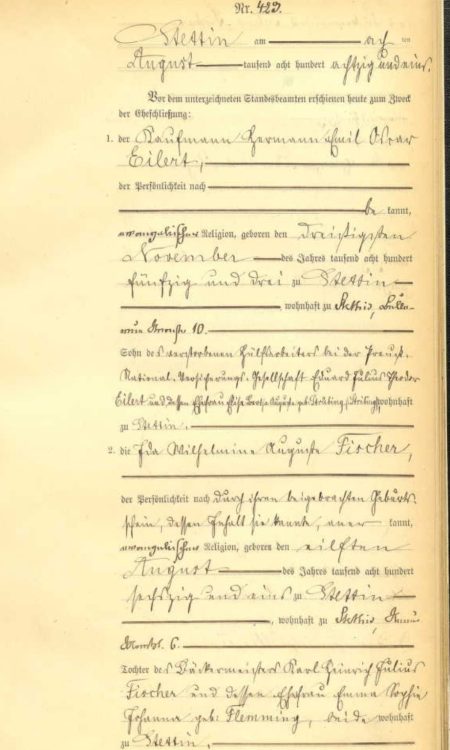 Nr. 423.
Stettin am ach ten
August tausend acht hundert achtzig und eins.
Vor dem unterzeichneten Standesbeamten erschienen heute zum Zweck
der Eheschließung:
1. der Kaufmann Hermann Emil Oscar
Eilert,
der Persönlichkeit nach
be kannt,
evangelischer Religion, geboren den dreißigsten
November des Jahres tausend acht hundert
fünfzig und drei zu Stettin
, wohnhaft zu Stettin,
10.
Sohn des verstorbenen Hülfsarbeiters bei der Preuß.
National-Versicherungs-Gesellschaft Eduard Julius Theodor
Eilert und dessen Ehefrau geb. wohnhaft
zu Stettin.
2. die Ida Wilhelmine Auguste Fischer,
der Persönlichkeit nach durch ihren beigebrachten Geburts-
schein, dessen Inhalt sie kannte, aner kannt,
evangelischer Religion, geboren den eilften
August des Jahres tausend acht hundert
sechszig und eins zu Stettin
, wohnhaft zu Stettin,
6.
Tochter des Bäckermeisters Karl Heinrich Julius
Fischer und dessen Ehefrau Emma Sophie
Johanna geb: Flemming, beide wohnhaft
zu Stettin.